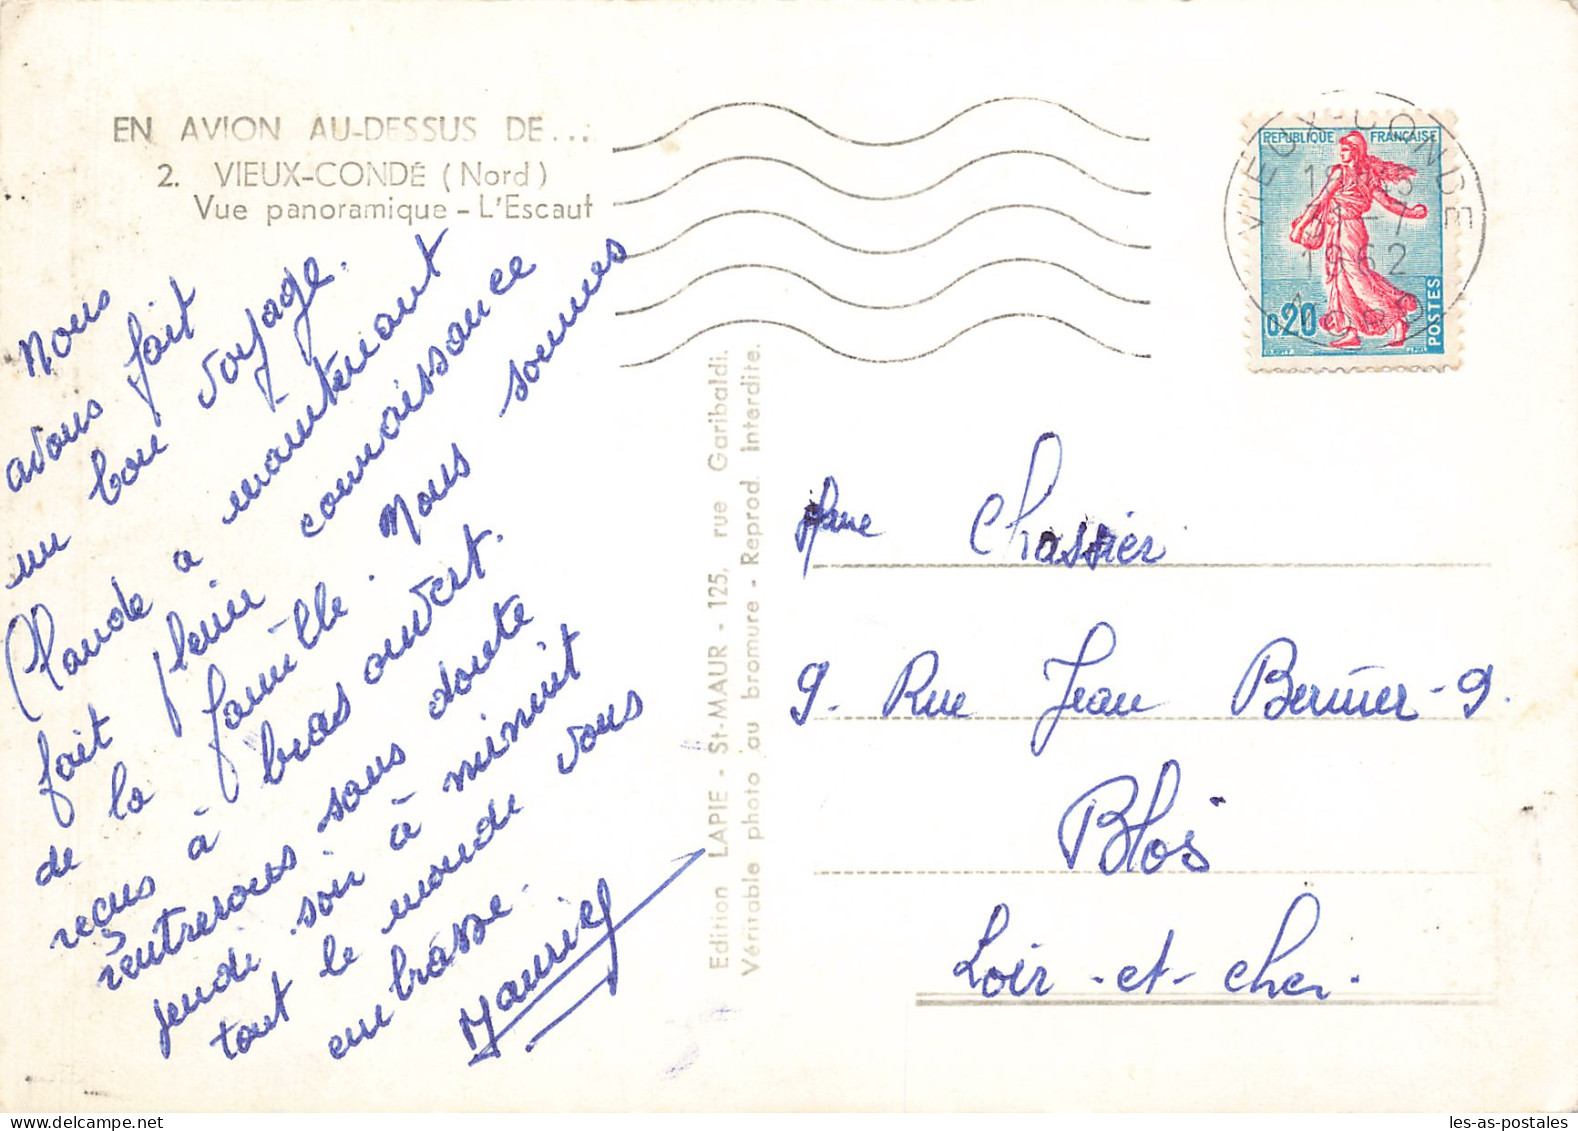 EN AVION AU-DESSUS DE...
2. VIEUX-CONDÉ (Nord)
Vue panoramique - L'Escaut
Nous
avons fait
un bon voyage.
Claude a maintenant
fait plein connaissance
de la famille. Nous sommes
reçus à bras ouvert.
rentrerons sans doute
jeudi soir à minuit
tout le monde vous
embrasse.
Edition LAPIE - St-MAUR - 125, rue Garibaldi.
Véritable photo au bromure - Reprod. Interdite.
REPUBLIQUE FRANÇAISE
0,20
POSTES
VIEUX-CONDE
31-7
1962
NORD
Chassier
9. Rue Jean Bernier-9.
Blois
Loir-et-cher.
les-as-postales